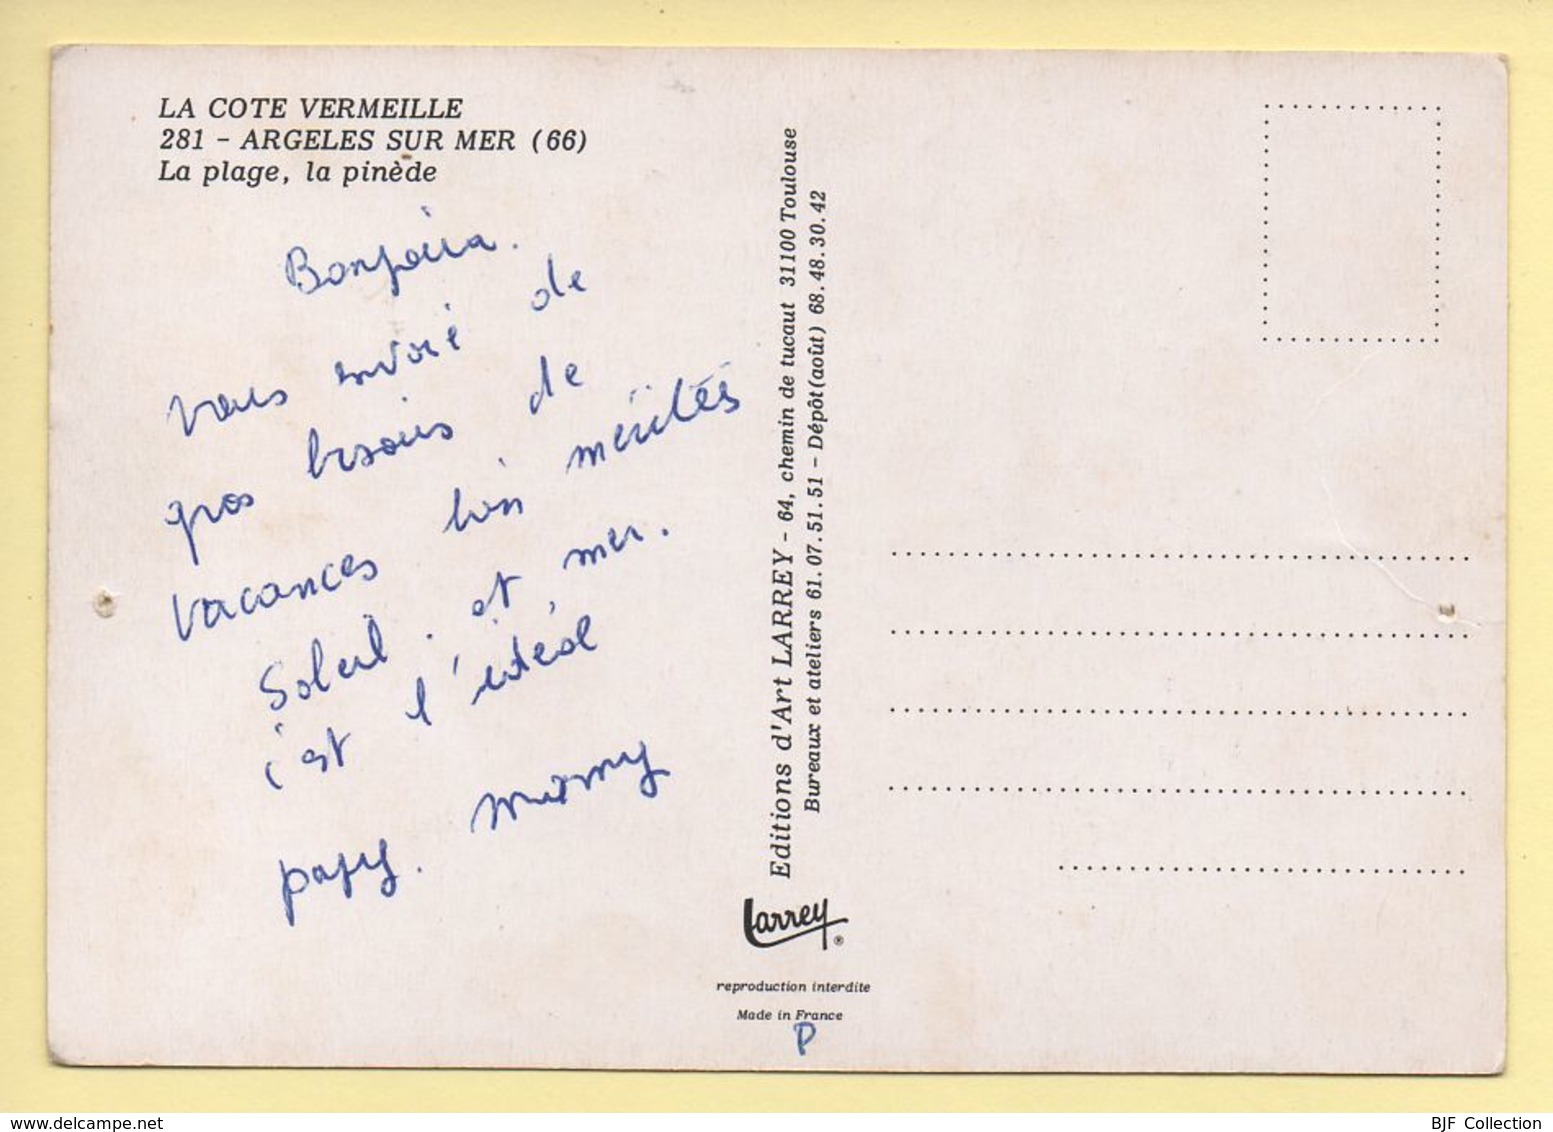 LA COTE VERMEILLE
281 - ARGELES SUR MER (66)
La plage, la pinède
Bonjour.
vous envoie de
gros bisous de
vacances bien mérités
Soleil. et mer.
c'est l'idéal
papy. mamy
Editions d'Art LARREY - 64, chemin de tucaut 31100 Toulouse
Bureaux et ateliers 61.07.51.51 - Dépôt(août) 68.48.30.42
Larrey ®
reproduction interdite
Made in France
P
BJF Collection